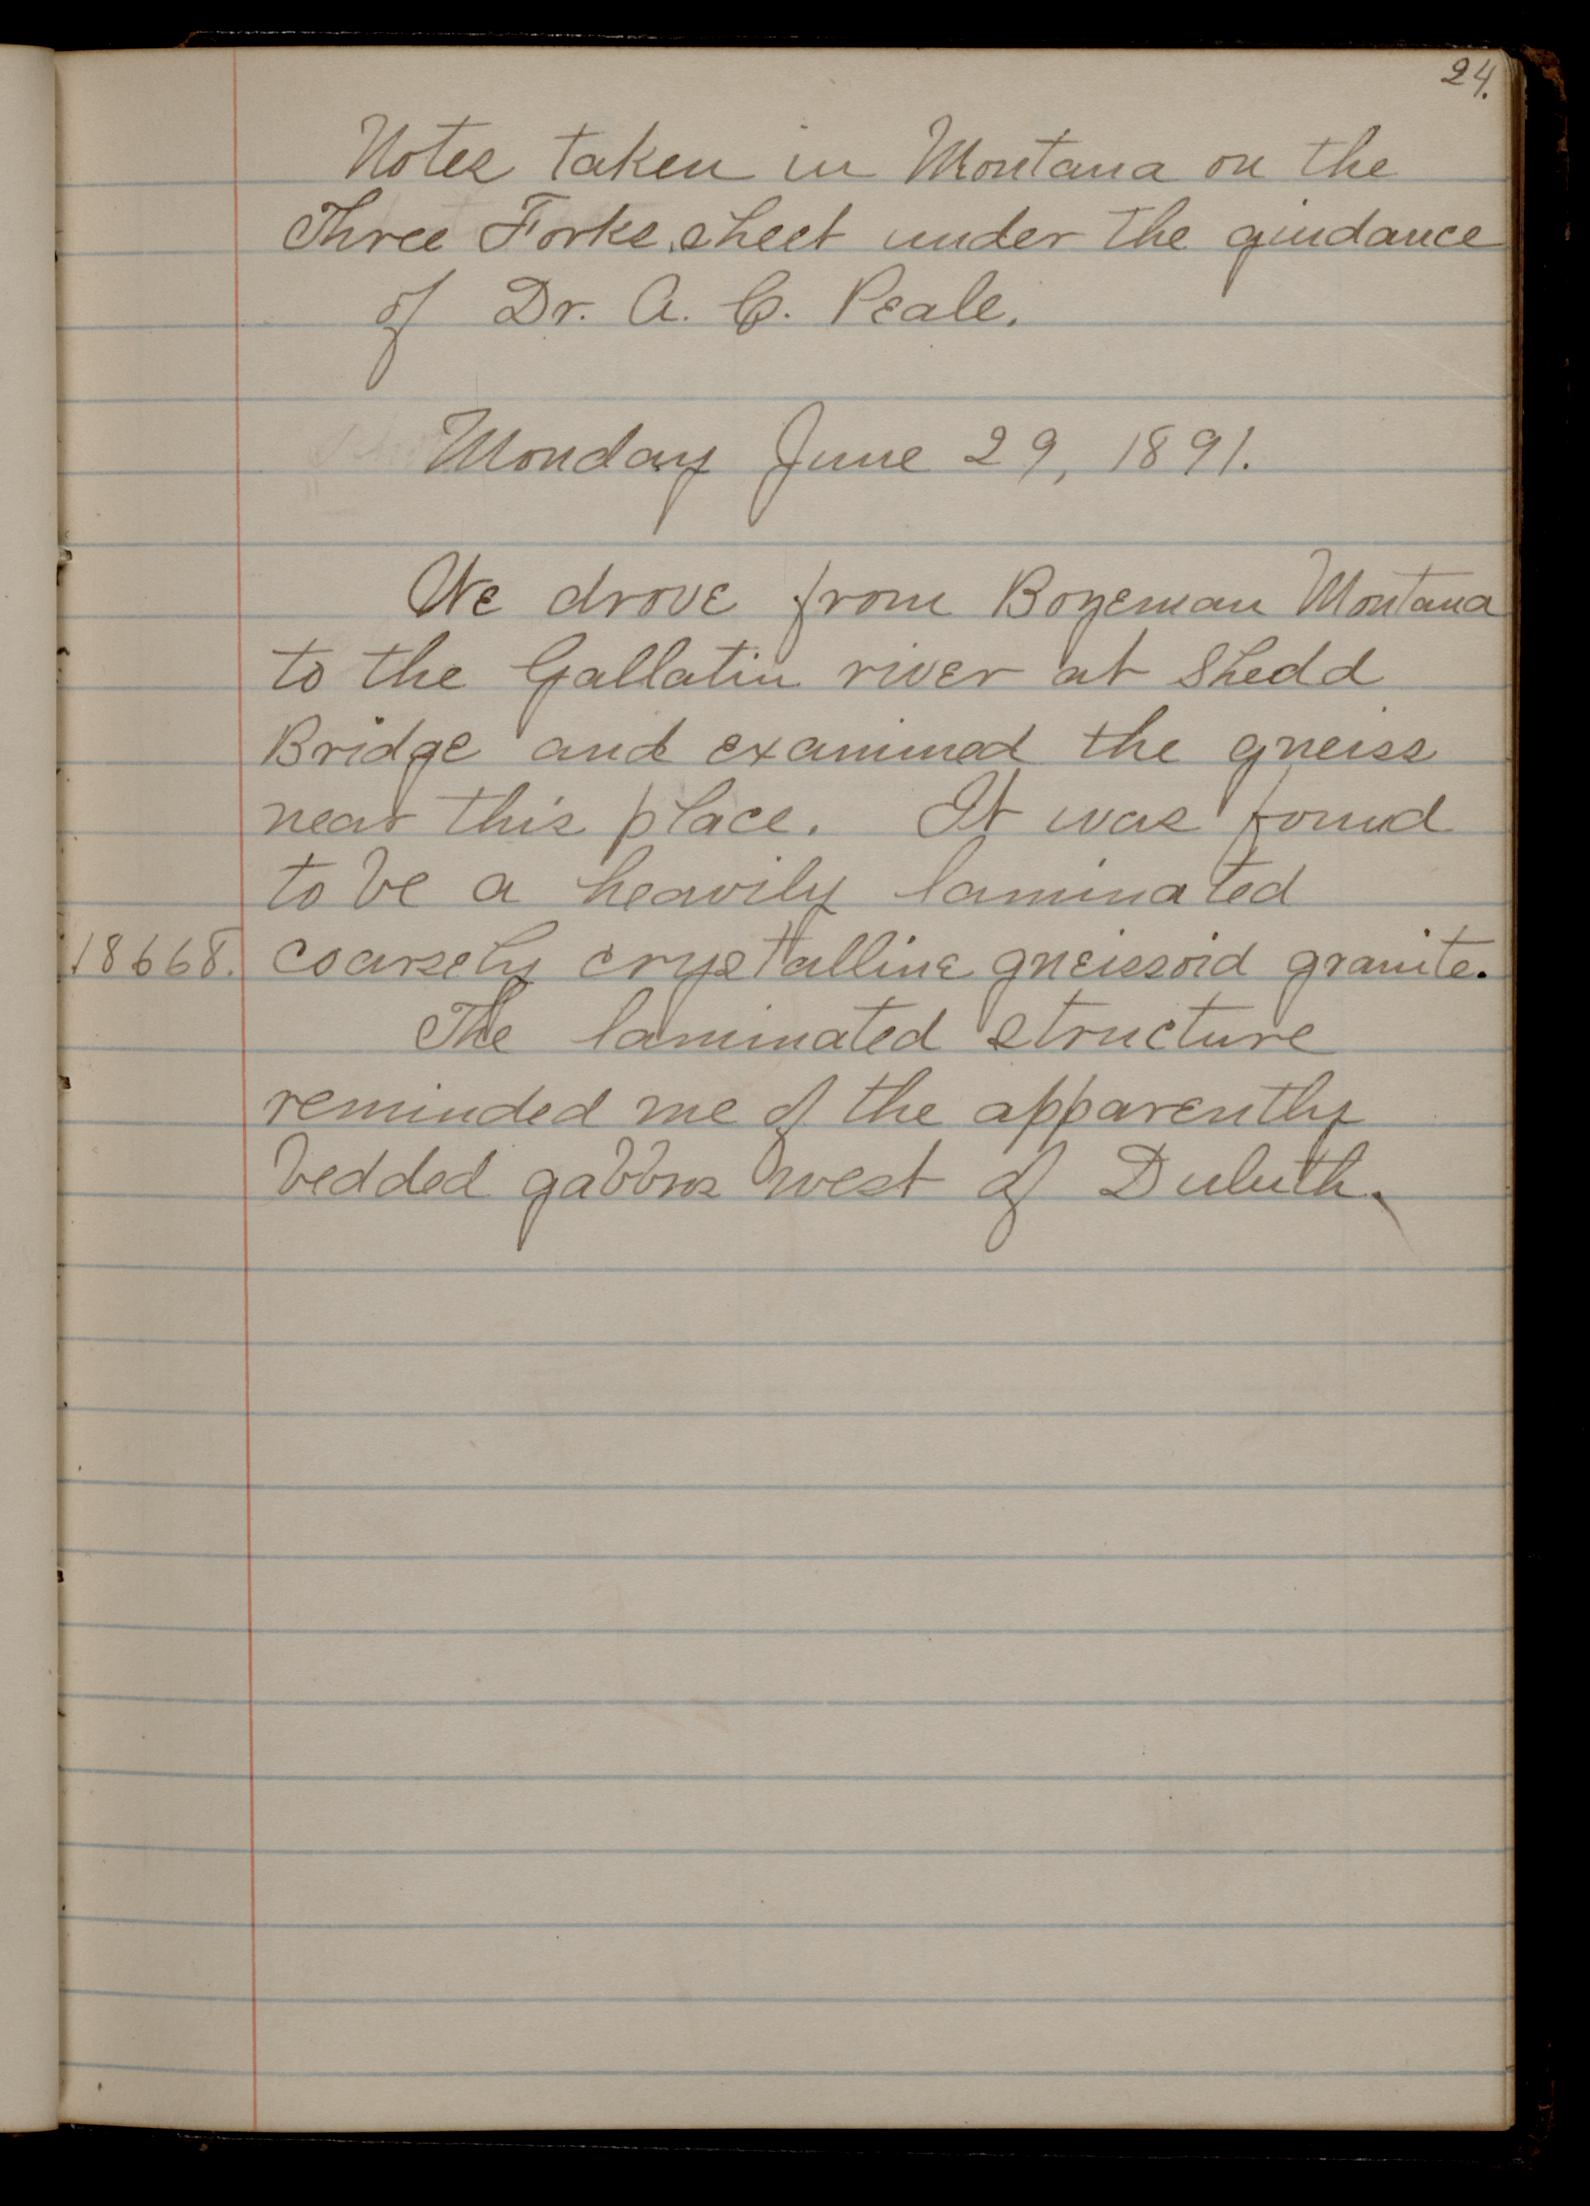 24.
Notes taken in Montana on the
Three Forks sheet under the guidance
of Dr. A. C. Peale.
Monday June 29, 1891.
We drove from Bozeman Montana
to the Gallatin river at Shedd
Bridge and examined the gneiss
near this place. It was found
to be a heavily laminated
18668. coarsely crystalline gneissoid granite.
The laminated structure
reminded me of the apparently
bedded gabbros west of Duluth.